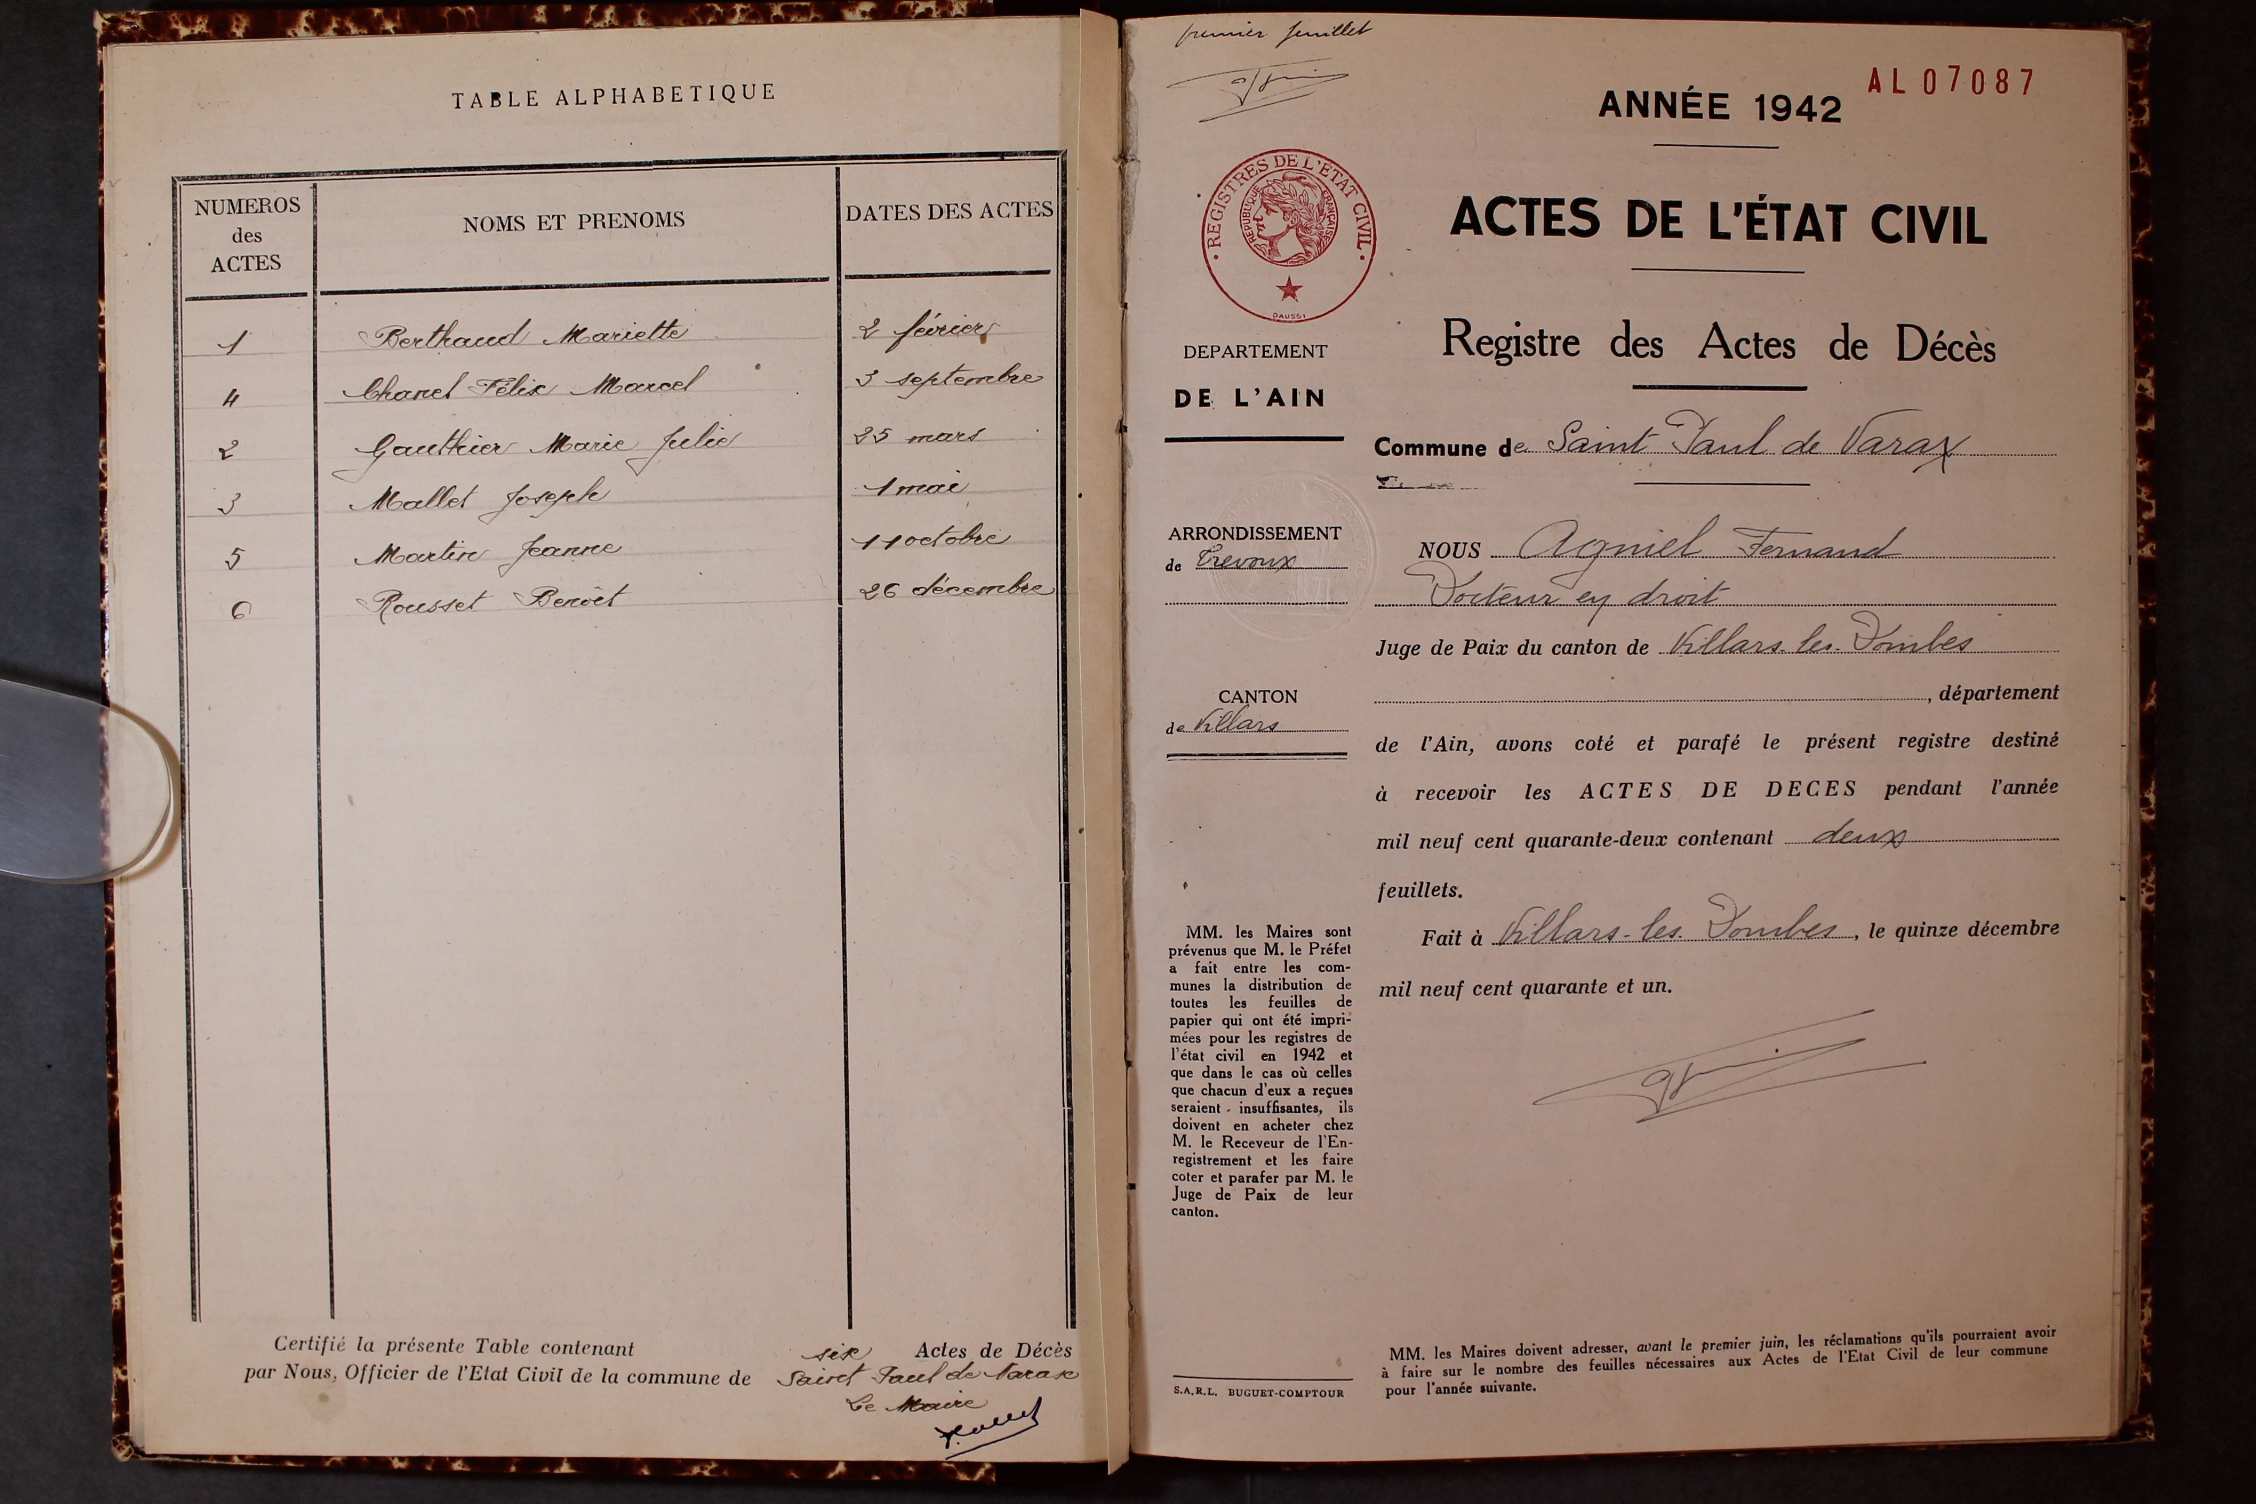 TABLE ALPHABETIQUE
NUMEROS
des
ACTES
NOMS ET PRENOMS
DATES DES ACTES
1 Berthaud Mariette 2 février
4 Chanel Félix Marcel 3 septembre
2 Gauthier Marie Julie 25 mars
3 Mallet Joseph 1 mai
5 Martin Jeanne 11 octobre
6 Rousset Benoît 26 décembre
Certifié la présente Table contenant six Actes de Décès
par Nous, Officier de l'Etat Civil de la commune de Saint Paul de Varax
Le Maire
premier feuillet
AL07087
ANNÉE 1942
REGISTRES DE L'ÉTAT CIVIL
RÉPUBLIQUE FRANÇAISE
DAUSSI
ACTES DE L'ÉTAT CIVIL
Registre des Actes de Décès
DEPARTEMENT
DE L'AIN
ARRONDISSEMENT
de Trevoux
CANTON
de Villars
MM. les Maires sont
prévenus que M. le Préfet
a fait entre les com-
munes la distribution de
toutes les feuilles de
papier qui ont été impri-
mées pour les registres de
l'état civil en 1942 et
que dans le cas où celles
que chacun d'eux a reçues
seraient insuffisantes, ils
doivent en acheter chez
M. le Receveur de l'En-
registrement et les faire
coter et parafer par M. le
Juge de Paix de leur
canton.
S.A.R.L. BUGUET-COMPTOUR
Commune de Saint Paul de Varax
NOUS Agniel Fernand
Docteur en droit
Juge de Paix du canton de Villars-les-Dombes
, département
de l'Ain, avons coté et parafé le présent registre destiné
à recevoir les ACTES DE DECES pendant l'année
mil neuf cent quarante-deux contenant deux
feuillets.
Fait à Villars-les-Dombes, le quinze décembre
mil neuf cent quarante et un.
MM. les Maires doivent adresser, avant le premier juin, les réclamations qu'ils pourraient avoir
à faire sur le nombre des feuilles nécessaires aux Actes de l'Etat Civil de leur commune
pour l'année suivante.